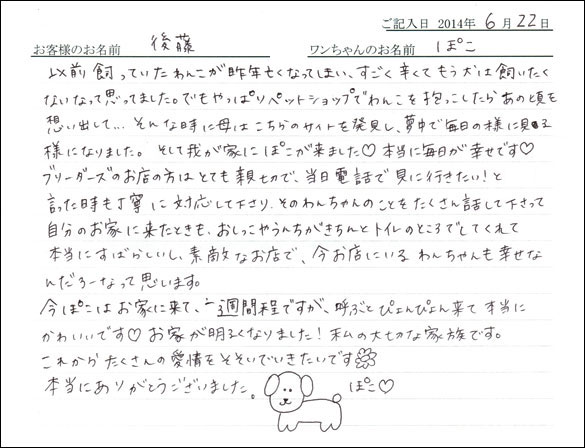 ご記入日 2014年 6月 22日
お客様のお名前 後藤 ワンちゃんのお名前 ぽこ
以前飼っていたわんこが昨年亡くなってしまい、すごく辛くてもう犬は飼いたく
ないなって思ってました。でもやっぱりペットショップでわんこを抱っこしたらあの頃を
想い出して... そんな時に母はこちらのサイトを発見し、夢中で毎日の様に見る
様になりました。そして我が家にぽこが来ました♡本当に毎日が幸せです♡
ブリーダーズのお店の方はとても親切で、当日電話で見に行きたい!と
言った時も丁寧に対応して下さり、そのわんちゃんのことをたくさん話して下さって
自分のお家に来たときも、おしっこやうんちがきちんとトイレのところでしてくれて
本当にすばらしいし、素敵なお店で、今お店にいるわんちゃんも幸せな
んだろーなって思います。
今ぽこはお家に来て、二、三週間程ですが、呼ぶとぴょんぴょん来て本当に
かわいいです♡お家が明るくなりました!私の大切な家族です。
これからたくさんの愛情をそそいでいきたいです
本当にありがとうございました。 ぽこ♡